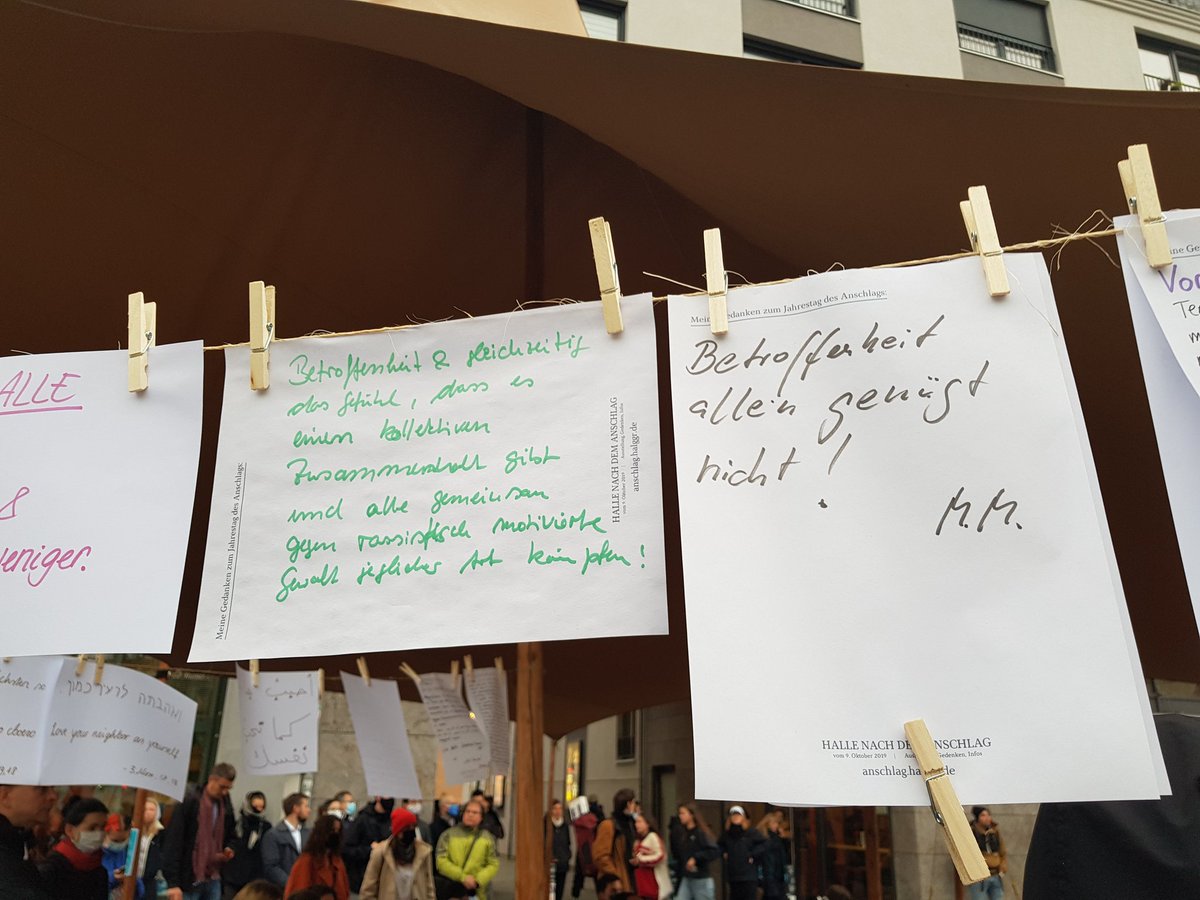 ALLE
&
weniger.
Meine Gedanken zum Jahrestag des Anschlags:
Betroffenheit & gleichzeitig
das Gefühl, dass es
einen kollektiven
Zusammenhalt gibt
und alle gemeinsam
gegen rassistisch motivierte
Gewalt jeglicher Art kämpfen!
HALLE NACH DEM ANSCHLAG
vom 9. Oktober 2019 | Ausstellung, Gedenken, Infos
anschlag.halggr.de
Meine Gedanken zum Jahrestag des Anschlags:
Betroffenheit
allein genügt
nicht!
M.M.
HALLE NACH DEM ANSCHLAG
vom 9. Oktober 2019 | Gedenken, Infos
anschlag.ha de
ine Ge
Vor
Te
m
ואהבתה לרעך כמוך.
Love your neighbor as yourself
أحبب
كما
نفسك